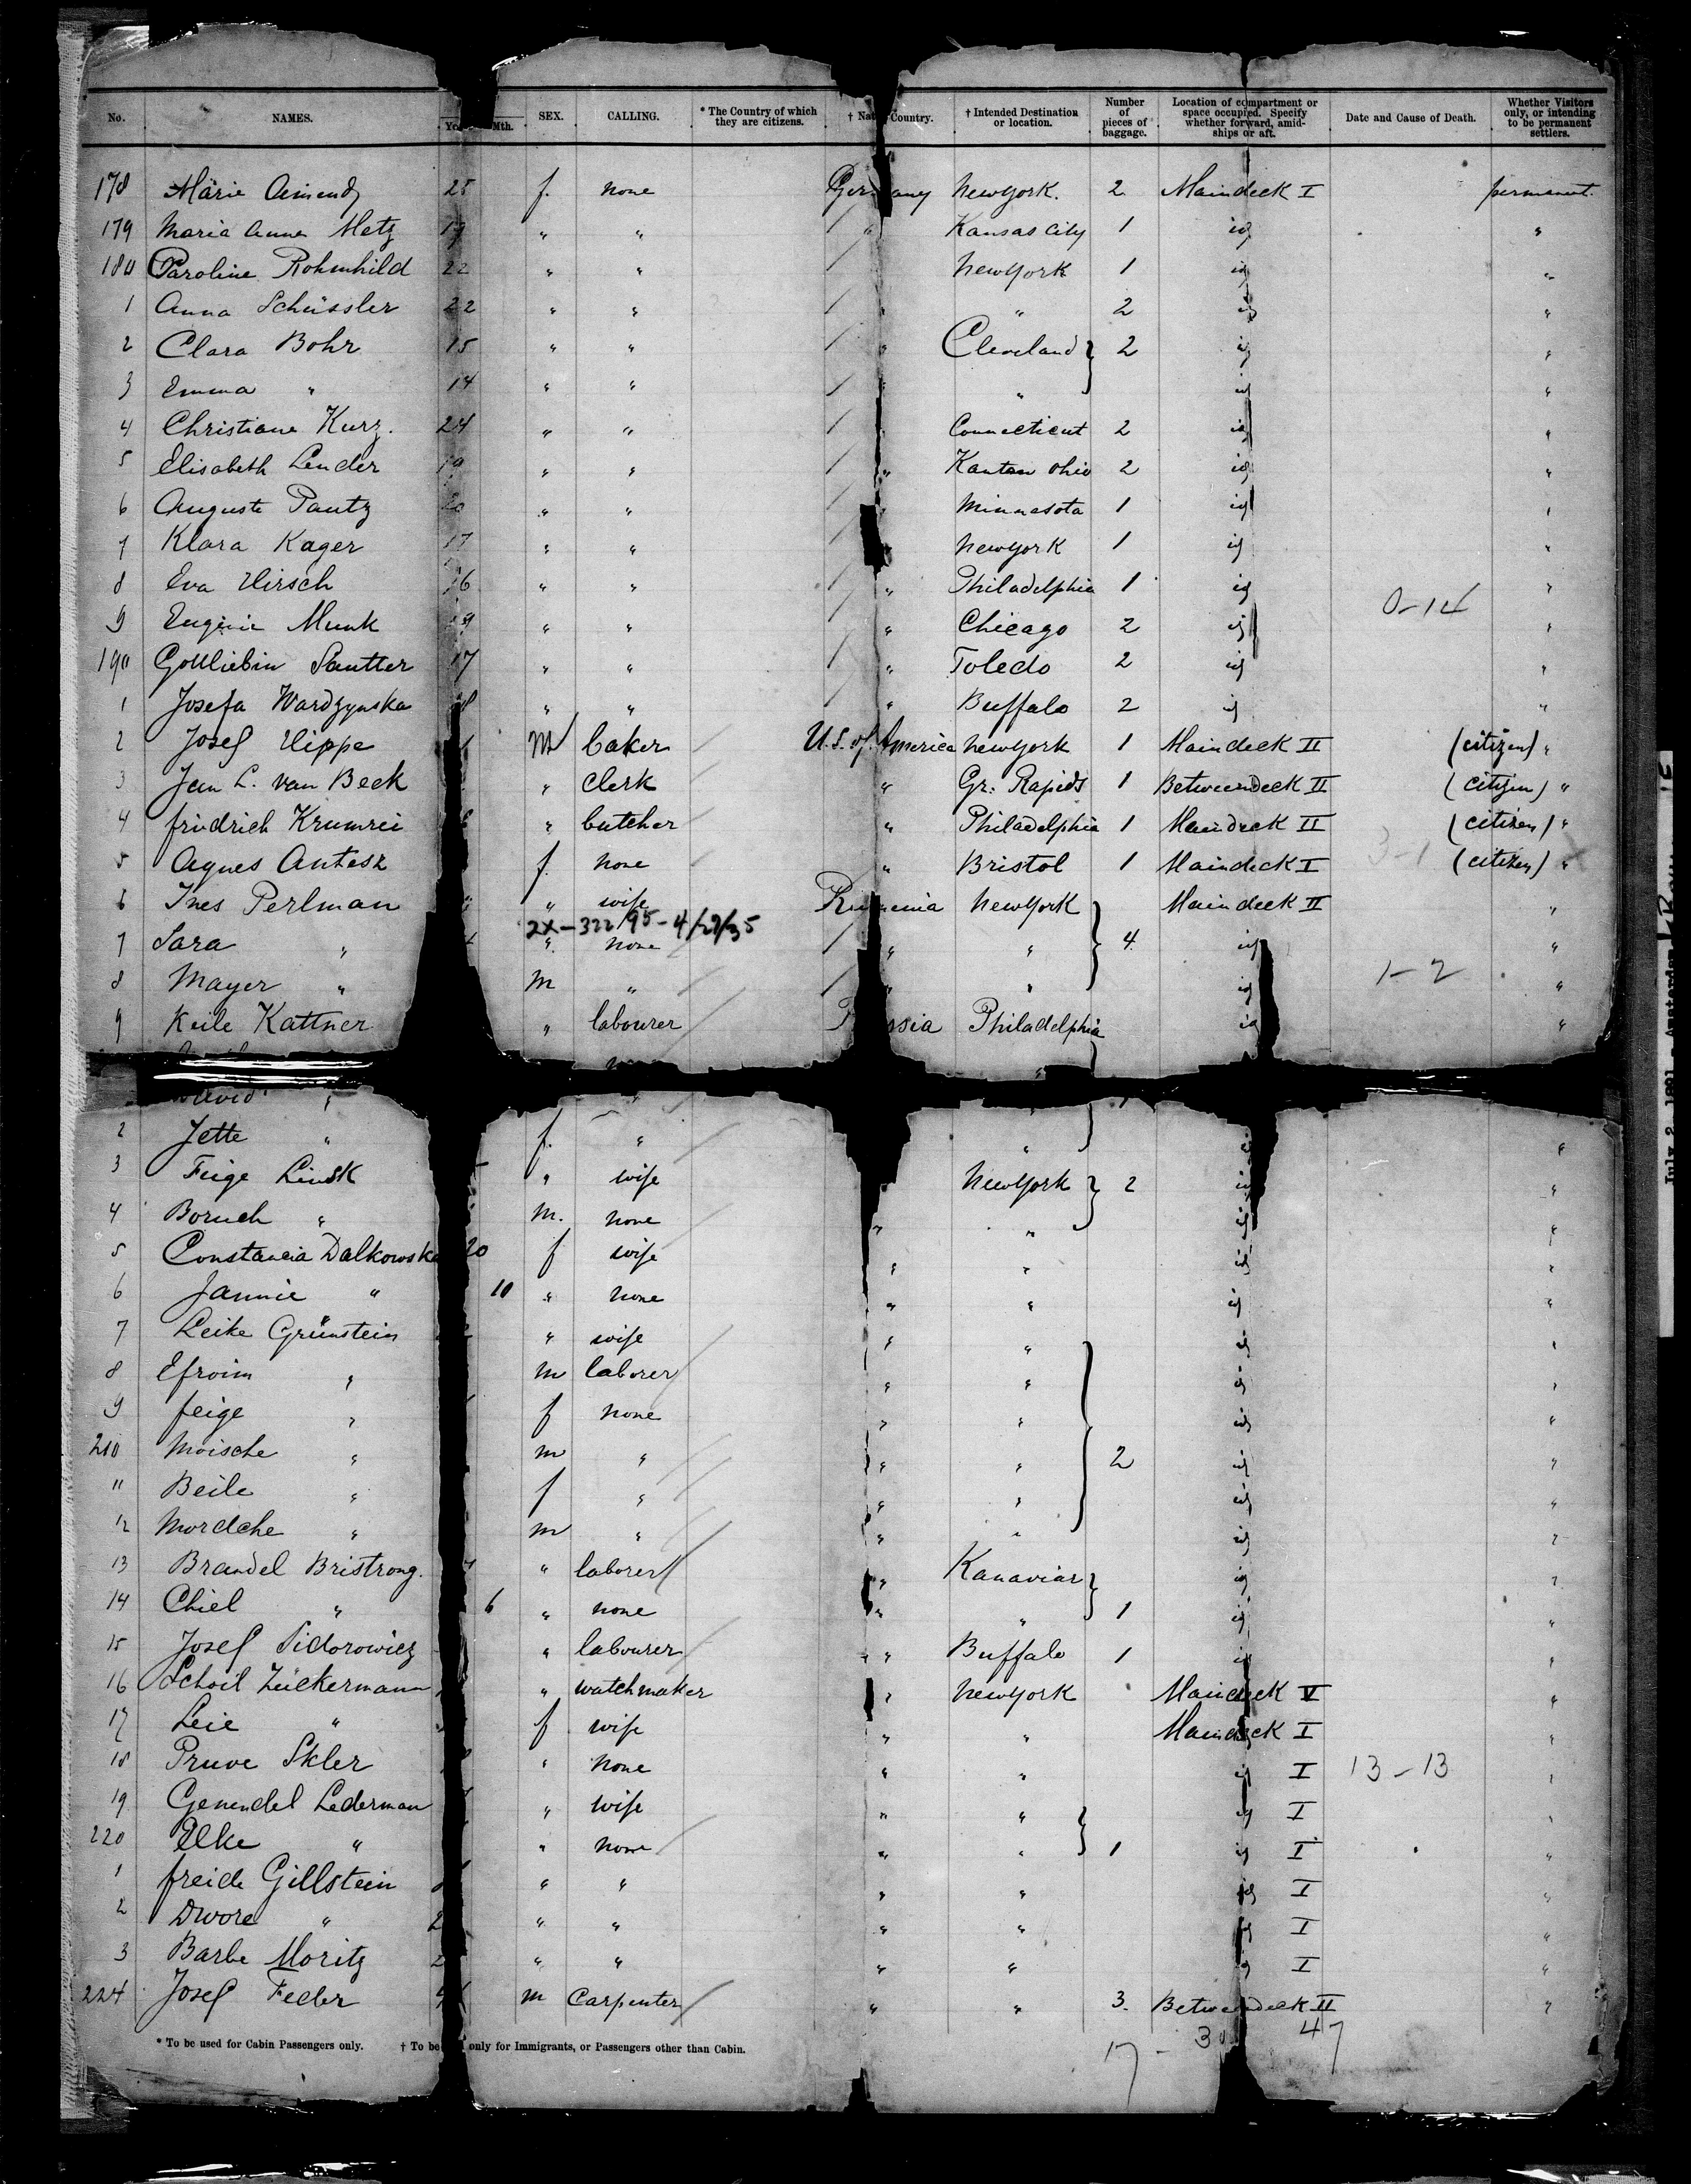 No. NAMES. Mth. SEX. CALLING. * The Country of which they are citizens. † Nat Country. † Intended Destination or location. Number of pieces of baggage. Location of compartment or space occupied. Specify whether forward, amid-ships or aft. Date and Cause of Death. Whether Visitors only, or intending to be permanent settlers.
178 Marie 25 f. none Germany New York. 2 Maindeck I permanent.
179 Maria Anna Metz 19 " " / " Kansas City 1 id "
180 Caroline Rohmhild 22 " " New York 1 id "
1 Anna Schüssler 22 " " / " 2 id "
2 Clara Bohr 15 " " / " Cleveland } 2 id "
3 Emma " 14 " " / " " id "
4 Christiane Kurz. 24 " " / " Connecticut 2 id "
5 Elisabeth Lender 19 " " / " Kanton Ohio 2 id "
6 Auguste Pautz 20 " " / Minnesota 1 id "
7 Klara Kager 17 " " / " New York 1 id "
8 Eva Hirsch 16 " " / " Philadelphia 1 id "
0-14
9 Eugenie Munk " " / " Chicago 2 id "
190 Gottliebin Sautter 17 " " / " Toledo 2 id "
1 Josefa Wardzynska " " " Buffalo 2 id "
2 Josef Hippe M baker / U.S. of America New York 1 Maindeck II (citizen) "
3 Jan L. van Beek " clerk " Gr. Rapids 1 Betweendeck II (citizen) "
4 Friedrich Krumrei " butcher " Philadelphia 1 Maindeck II (citizen) "
5 Agnes Antesz f. none " Bristol 1 Maindeck I 3-1 (citizen) "
6 Ines Perlman " wife Rumenia New York } Maindeck II "
2X-322/95-4/29/35
7 Sara " " none / " " 4 id "
8 Mayer " m " / " " id 1-2 "
9 Keile Kattner " labourer Russia Philadelphia id "
David "
2 Jette " f. " " "
3 Feige Linsk " wife New York } 2 id "
4 Boruch " m. none " " id "
5 Constancia Dalkowska 20 f wife " " id "
6 Jannie " 10 " none " " id "
7 Leike Grünstein " wife " " id "
8 Efroim " m laborer " " id "
9 feige " f none " " id "
210 Moische " m " " " } 2 id "
11 Beile " f " " " id "
12 Mordche " m " " " id "
13 Brandel Bristrong. " laborer " Kanaviar } id "
14 Chiel " 6 " none " " 1 id "
15 Josef Sidorowicz " labourer " Buffalo 1 id "
16 Schoil Zückermann " watchmaker " New York Maindeck V "
17 Leie " f wife " " Maindeck I "
18 Pruve Skler " none " " id I 13-13 "
19 Genendel Lederman " wife " " } id I "
220 Elke " " none " " 1 id I "
1 freide Gillstein " " " " id I "
2 Dwore " 2 " " " " id I "
3 Barbe Moritz 2 " " " " id I "
224 Josef Feder m Carpenter " " 3. Betweendeck II "
* To be used for Cabin Passengers only. † To be only for Immigrants, or Passengers other than Cabin.
17 - 30 47